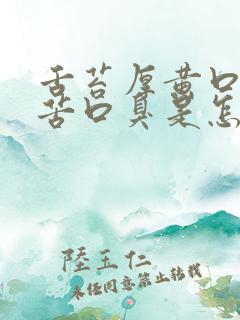 舌苔厚黄口
苦口臭是怎
陸玉仁
未经同意禁止转载